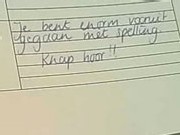 Je bent enorm vooruit
gegaan met spelling.
Knap hoor!!